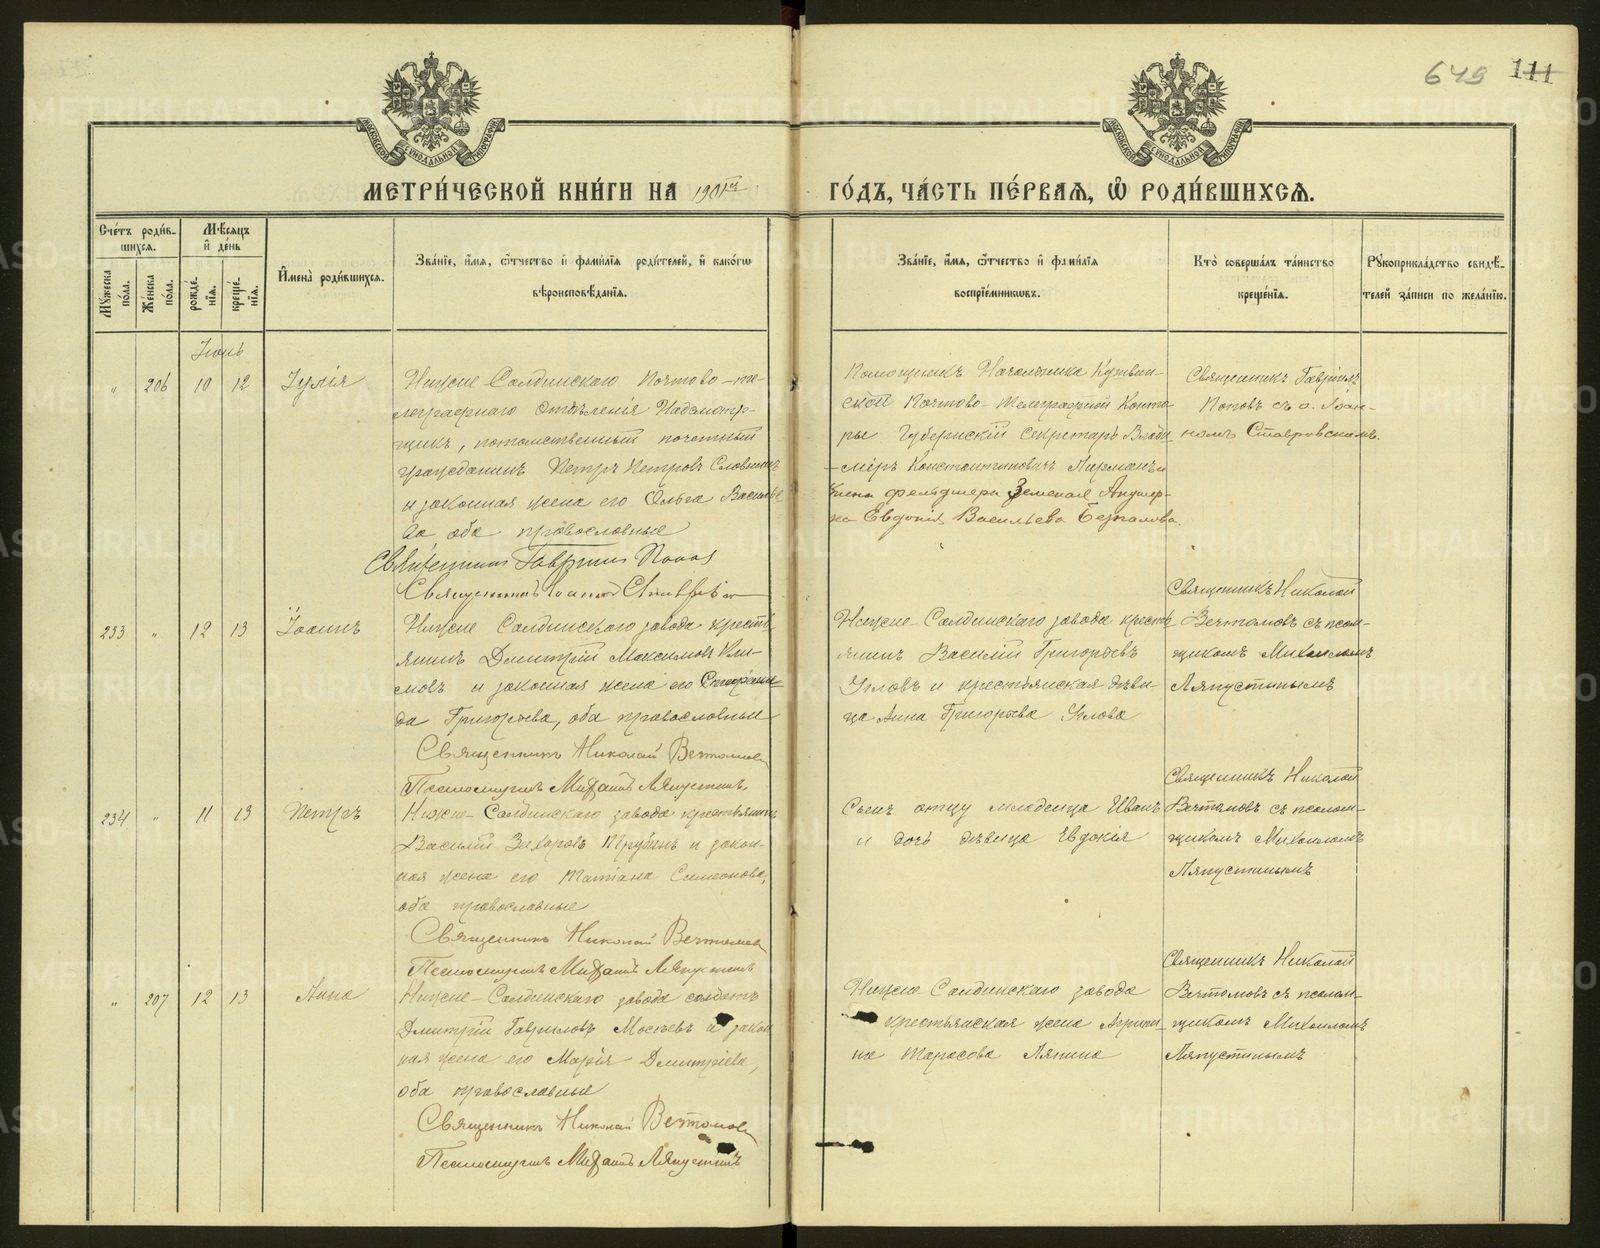 649 111
МЕТРИ́ЧЕСКОЙ КНИ́ГИ НА 1901й ГО́ДЪ, ЧА́СТЬ ПЕ́РВАѦ, Ѡ РОДИ́ВШИХСѦ.
Сче́тъ роди́в-
шихсѧ.
Мѣ́сѧцъ
и҆ де́нь
Мꙋ́жеска по́ла.
Же́нска по́ла.
рожде́нїѧ.
креще́нїѧ.
И҆мена̀ роди́вшихсѧ.
Зва́нїе, и҆́мѧ, ѻ҆́тчество и҆ фами́лїѧ роди́телей, и҆ како́гѡ
вѣроисповѣ́данїѧ.
Зва́нїе, и҆́мѧ, ѻ҆́тчество и҆ фами́лїѧ
воспрїе́мникѡвъ.
Кто̀ соверша́лъ та́инство
креще́нїѧ.
Рꙋкоприкла́дство свидѣ́-
телей за́писи по жела́нїю.
Іюнь
" 206 10 12 Іулія
Нижне-Салдинскаго Почтово-те-
леграфнаго Отдѣленія Надсмотр-
щикъ, потомственный почетный
гражданинъ Петръ Петровъ
и законная жена его Ольга Василье-
ва, оба православные
Священникъ Гавріилъ Попов
Священникъ
Помощникъ Начальника Кушвин-
ской Почтово-Телеграфной Конто-
ры Губернскій секретарь Влади-
міръ Константиновичъ
жена фельдшера Земская Акушер-
ка Евдокія Васильева
Священникъ Гавріилъ
Поповъ съ о. Іоан-
номъ Ставровскимъ.
233 " 12 13 Іоаннъ
Нижне-Салдинскаго завода кресть-
янинъ Дмитрій Максимовъ Кли-
мовъ и законная жена его Спириди-
да Григорьева, оба православные
Священникъ Николай Вечтомовъ
Псаломщикъ Михаилъ Ляпустинъ.
Нижне-Салдинскаго завода кресть-
янинъ Василій Григорьевъ
Угловъ и крестьянская дѣви-
ца Анна Григорьева Углова
Священникъ Николай
Вечтомовъ съ псалом-
щикомъ Михаиломъ
Ляпустинымъ
234 " 11 13 Петръ
Нижне-Салдинскаго завода крестьянинъ
Василій Захаровъ Трубинъ и закон-
ная жена его Татіана Симеонова,
оба православные
Священникъ Николай Вечтомовъ
Псаломщикъ Михаилъ Ляпустинъ
Сынъ отцу младенца Иванъ
и дочь дѣвица Евдокія
Священникъ Николай
Вечтомовъ съ псалом-
щикомъ Михаиломъ
Ляпустинымъ
" 207 12 13 Анна
Нижне-Салдинскаго завода солдатъ
Дмитрій Гавриловъ Мосѣевъ и закон
ная жена его Марія Дмитріева,
оба православные
Священникъ Николай Вечтомовъ
Псаломщикъ Михаилъ Ляпустинъ
Нижне Салдинскаго завода
крестьянская жена Агрипи-
на Тарасова Ляпина
Священникъ Николай
Вечтомовъ съ псалом-
щикомъ Михаиломъ
Ляпустинымъ